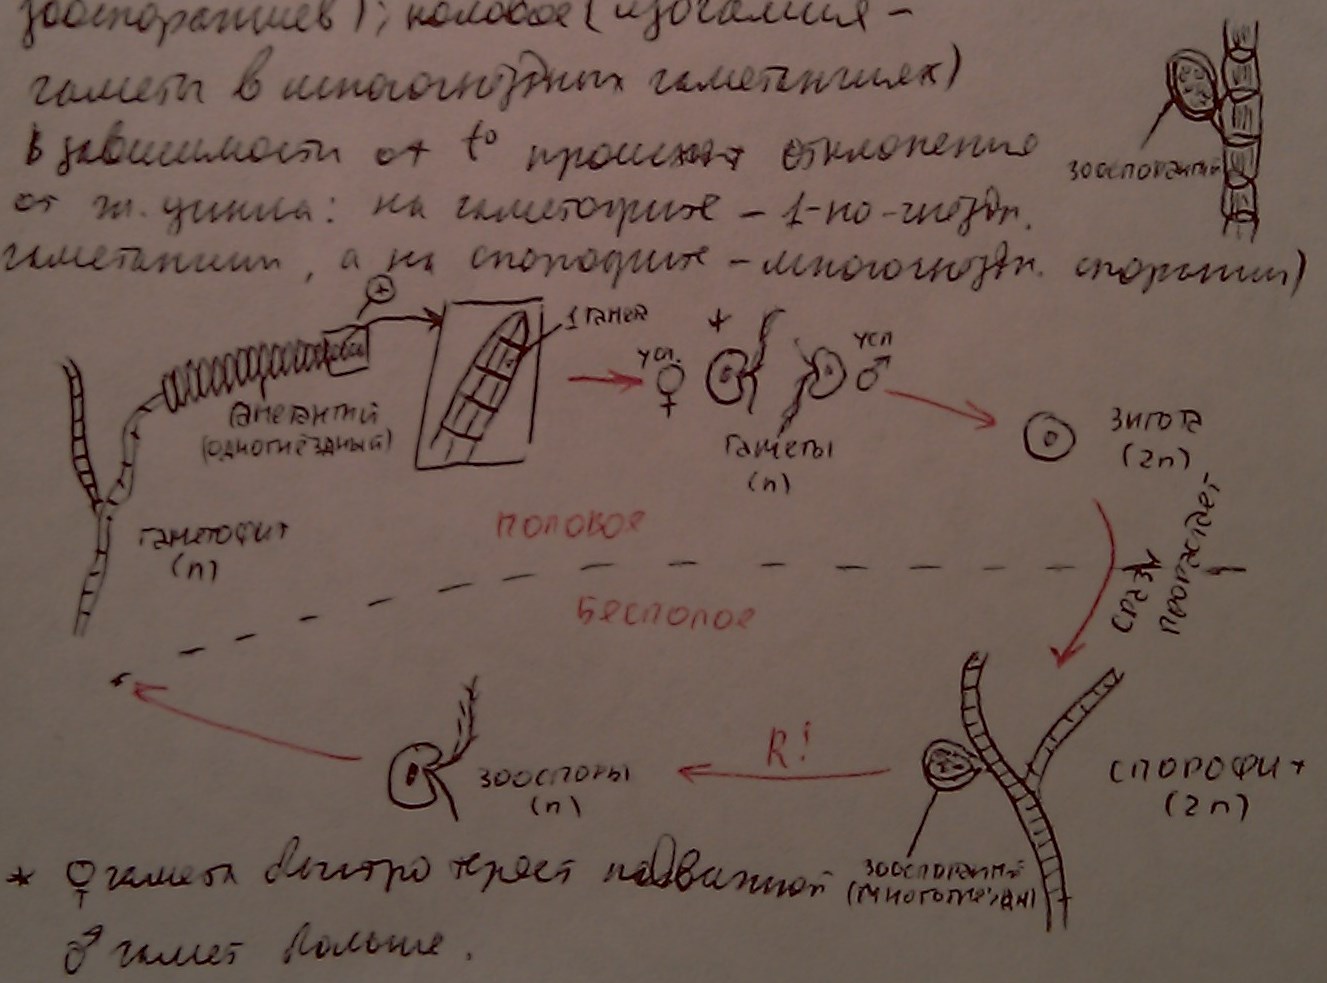 зооспорангиев); половое (изогамия -
гаметы в многогнёздных гаметангиях)
В зависимости от t° происходят отклонение
от ж. цикла: на гаметофите - 1-но-гнёздн.
гаметангии, а на спорофите - многогнёздн. спорангии)
зооспорангий
+
1 гамета
гаметангий
(одногнёздный)
усл. ♀
+
усл ♂
гаметы
(n)
зигота
(2n)
гаметофит
(n)
половое
Бесполое
сразу
прорастает
R!
зооспоры
(n)
спорофит
(2n)
зооспорангий
(многогнёздн)
* ♀ гамета быстро теряет
♂ гамет больше.